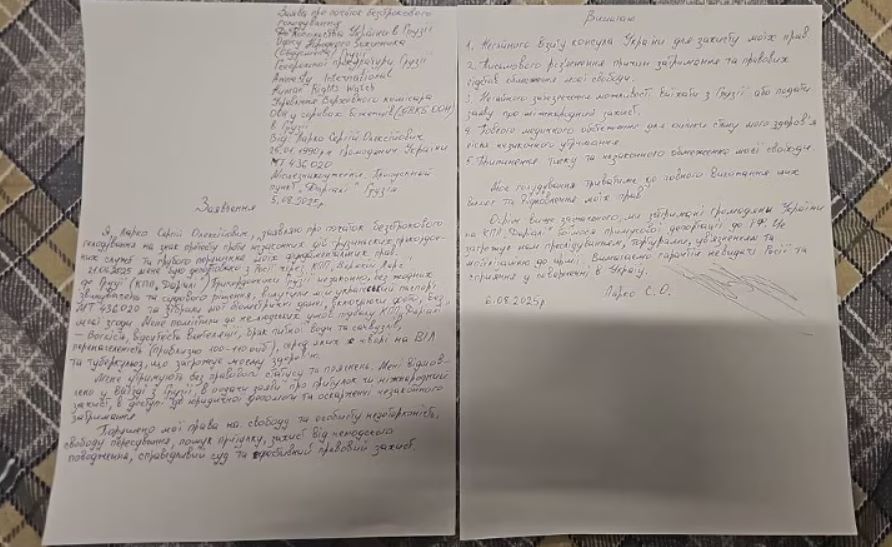 Заява про початок безстрокового
голодування
До Консульства України в Грузії
Офісу Народного Захисника
(Омбудсмена) Грузії
Генеральної прокуратури Грузії
Amnesty International
Human Rights Watch
Управління Верховного комісара
ООН у справах біженців (УВКБ ООН)
в Грузії
Від: Ларко Сергій Олексійович
1990р.н. громадянин України
МТ 436020
Місцезнаходження: Пропускний
пункт „Даріалі" Грузія
5.08.2025р
Заявлення
Я, Ларко Сергій Олексійович, заявляю про початок безстрокового
голодування на знак протесту проти незаконних дій грузинських прикордон-
них служб та грубого порушення моїх фундаментальних прав.
2025 мене було депортовано з Росії через КПП „Верхній Ларс"
до Грузії (КПП „Даріалі") Прикордонники Грузії незаконно, без жодних
та судового рішення, вилучили мій український паспорт
МТ 436020 та зібрали мої біометричні данні, включаючи фото, без
моєї згоди. Мене помістили до нелюдських умов підвалу КПП „Даріалі"
– Вогкість, відсутність вентиляції, брак питної води та санвузлів,
перенаселеність (приблизно осіб), серед яких є хворі на ВІЛ
та туберкульоз, що загрожує моєму здоров'ю.
Мене утримують без правового статусу та пояснень. Мені відмов-
лено у виїзді з Грузії, в подачу заяви про притулок чи міжнародний
захист, в доступі до юридичної допомоги та оскарженні незаконного
затримання
Порушено мої права на свободу та особисту недоторканість,
свободу пересування, пошук притулку, захист від нелюдського
поводження, справедливий суд та ефективний правовий захист.
Вимагаю
1. Негайного візиту консула України для захисту моїх прав.
2. Письмового роз'яснення причин затримання та правових
підстав обмеження моєї свободи.
3. Негайного забезпечення можливості виїхати з Грузії або подати
заяву про міжнародний захист.
4. Повного медичного обстеження для оцінки стану мого здоров'я
після незаконного утримання.
5. Припинення тиску та незаконного обмеження моєї свободи.
Моє голодування триватиме до повного виконання цих
вимог та відновлення моїх прав.
Окрім вище зазначеного, ми затримані громадяни України
на КПП „Даріалі" боїмося примусової депортації до РФ. Це
загрожує нам переслідуванням, тортурами, ув'язненням та
мобілізацією до армії. Вимагаємо гарантій невидачі Росії та
сприяння у поверненні в Україну.
6.08.2025р Ларко С.О.